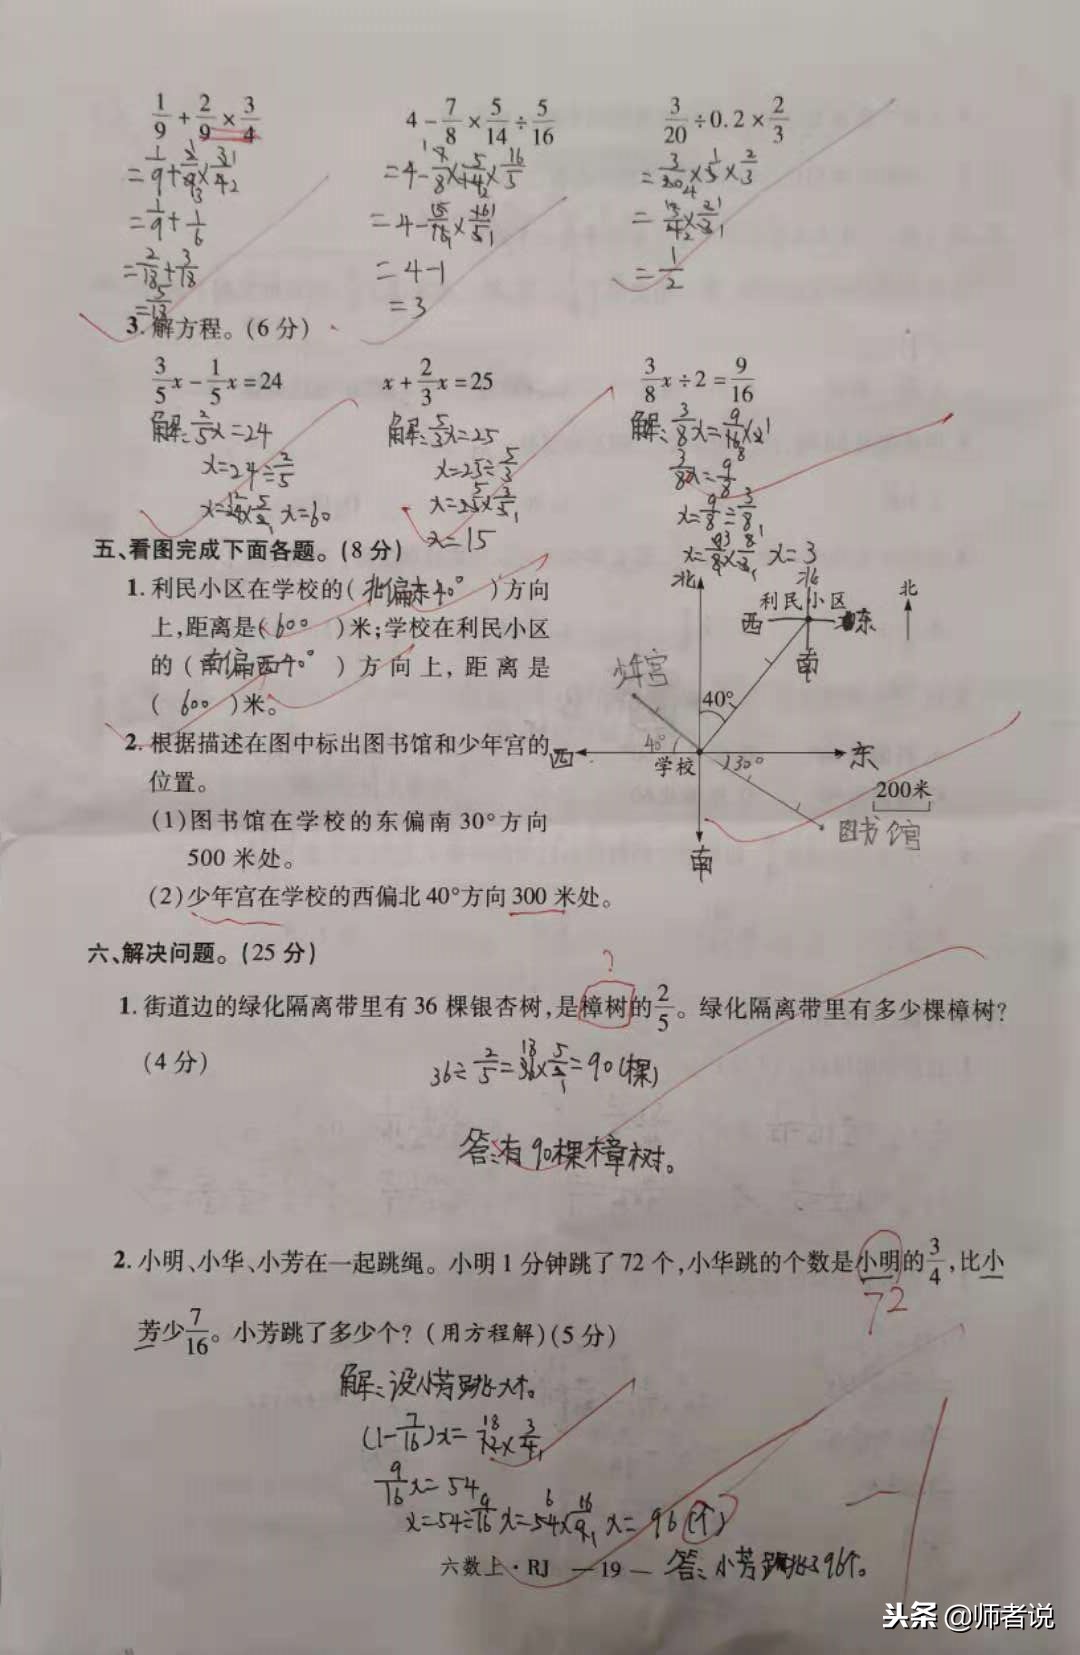 1/9 + 2/9 × 3/4    4 - 7/8 × 5/14 ÷ 5/16    3/20 ÷ 0.2 × 2/3
= 1/9 + 2/9 × 3/4    = 4 - 7/8 × 5/14 × 16/5    = 3/20 × 5/1 × 2/3
= 1/9 + 1/6    = 4 - 5/16 × 16/5    = 3/4 × 2/3
= 2/18 + 3/18    = 4-1    = 1/2
= 5/18    = 3
3. 解方程。(6分)
3/5 x - 1/5 x = 24    x + 2/3 x = 25    3/8 x ÷ 2 = 9/16
解: 2/5 x = 24    解: 5/3 x = 25    解: 3/8 x = 9/16 × 2
x = 24 ÷ 2/5    x = 25 ÷ 5/3    3/8 x = 9/8
x = 24 × 5/2    x = 60    x = 25 × 3/5    x = 9/8 ÷ 3/8
x = 15    x = 9/8 × 8/3    x = 3
五、看图完成下面各题。(8分)
1. 利民小区在学校的( 北偏东40° )方向
上,距离是( 600 )米;学校在利民小区
的( 南偏西40° )方向上,距离是
( 600 )米。
2. 根据描述在图中标出图书馆和少年宫的
位置。
(1)图书馆在学校的东偏南30°方向
500米处。
(2)少年宫在学校的西偏北40°方向300米处。
北
北
北
利民小区
西
东
南
少年宫
40°
西
40°
学校
30°
东
200米
图书馆
南
六、解决问题。(25分)
?
1. 街道边的绿化隔离带里有36棵银杏树,是樟树的2/5。绿化隔离带里有多少棵樟树?
(4分)
36 ÷ 2/5 = 36 × 5/2 = 90(棵)
答:有90棵樟树。
2. 小明、小华、小芳在一起跳绳。小明1分钟跳了72个,小华跳的个数是小明的3/4,比小
72
芳少7/16。小芳跳了多少个?(用方程解)(5分)
解:设小芳跳x个。
(1-7/16)x = 72 × 3/4
9/16 x = 54
x = 54 ÷ 9/16    x = 54 × 16/9    x = 96(个)
六数上·RJ —19— 答:小芳跳了96个。
头条 @师者说